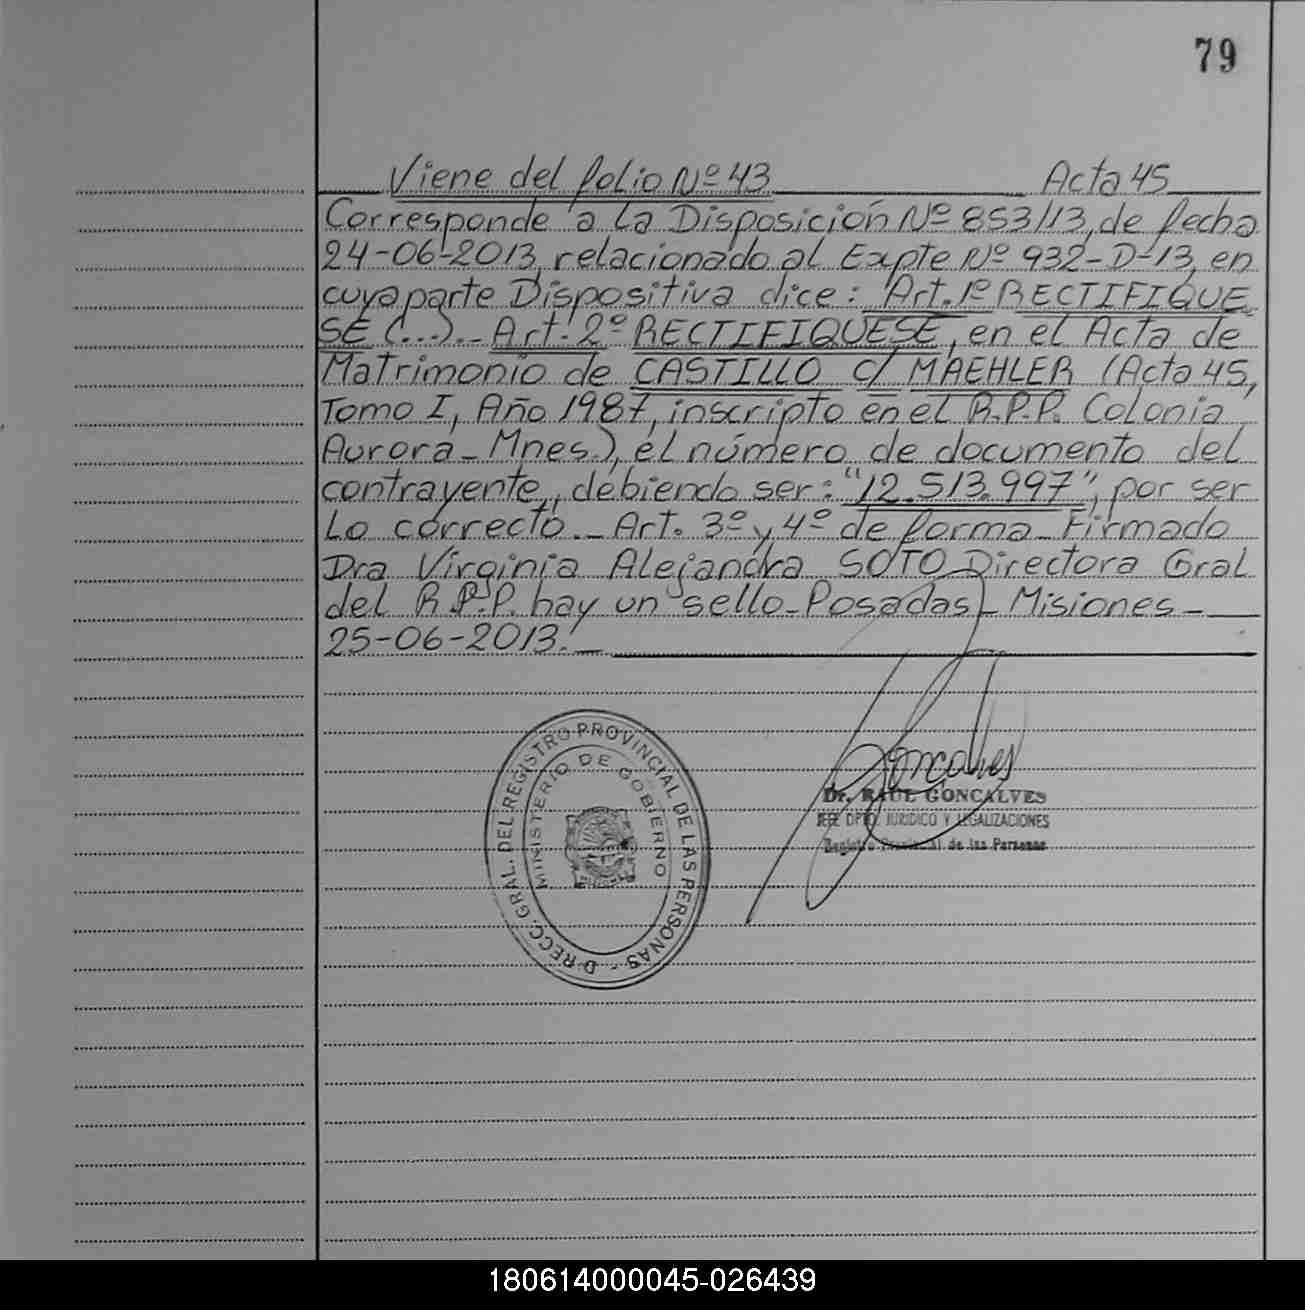 79
Viene del folio Nº 43 Acta 45
Corresponde a la Disposición Nº 853/13, de fecha
24-06-2013, relacionado al Expte Nº 932-D-13, en
cuya parte Dispositiva dice: Art. 1º RECTIFIQUE
SE (...).- Art. 2º RECTIFIQUESE, en el Acta de
Matrimonio de CASTILLO c/ MAEHLER (Acta 45,
Tomo I, Año 1987, inscripto en el R.P.P. Colonia
Aurora - Mnes.), el número de documento del
contrayente, debiendo ser: "12.513.997", por ser
lo correcto.- Art. 3º y 4º de forma - Firmado
Dra Virginia Alejandra SOTO Directora Gral
del R.P.P. hay un sello - Posadas - Misiones -
25-06-2013.-
Goncalves
Dr. RAUL GONCALVES
JEFE DPTO. JURIDICO Y LEGALIZACIONES
Registro Provincial de las Personas
DIRECC. GRAL. DEL REGISTRO PROVINCIAL DE LAS PERSONAS -
MINISTERIO DE GOBIERNO
180614000045-026439